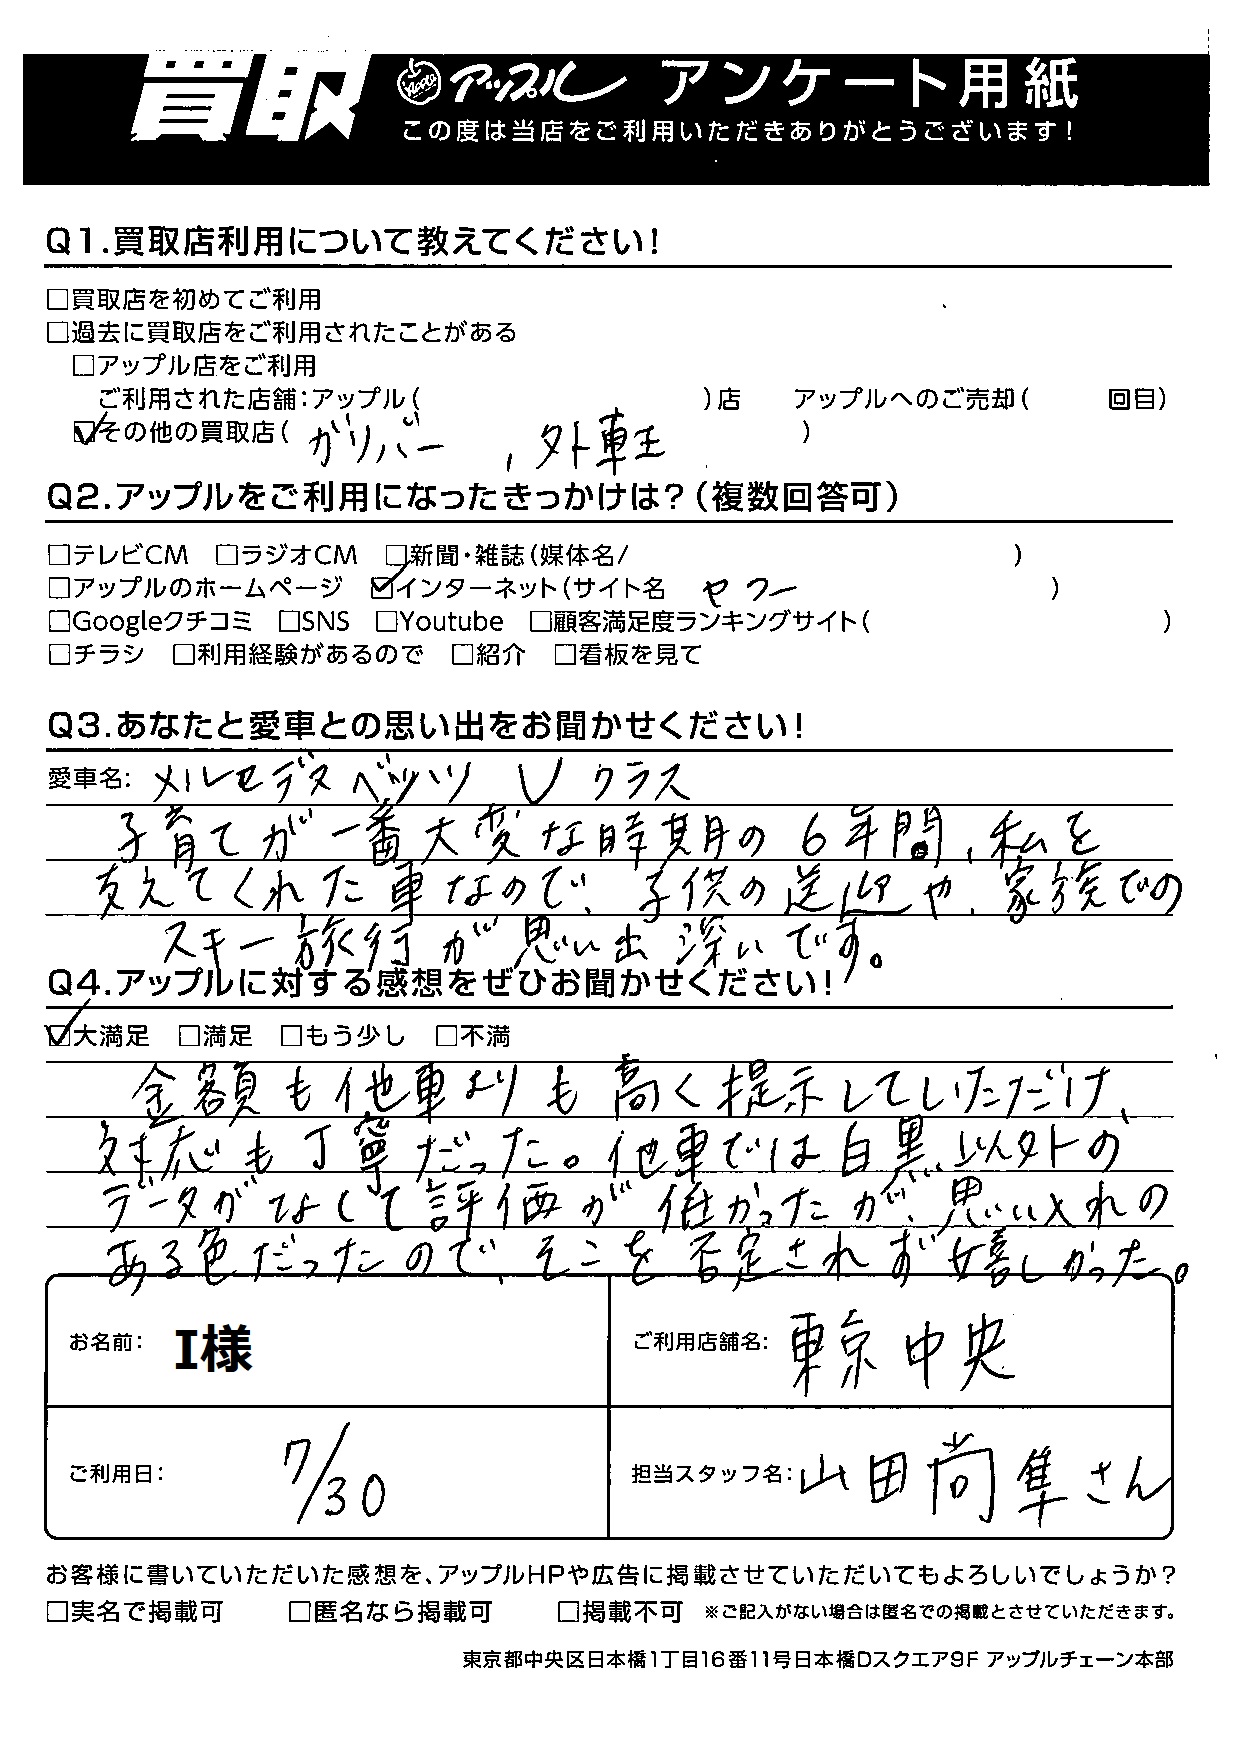 買取 Apple アップル アンケート用紙
この度は当店をご利用いただきありがとうございます!
Q1.買取店利用について教えてください!
□買取店を初めてご利用
□過去に買取店をご利用されたことがある
□アップル店をご利用
ご利用された店舗:アップル( )店 アップルへのご売却( 回目)
☑その他の買取店( ガリバー , 外車王 )
Q2.アップルをご利用になったきっかけは?(複数回答可)
□テレビCM □ラジオCM □新聞・雑誌(媒体名/ )
□アップルのホームページ ☑インターネット(サイト名 ヤフー )
□Googleクチコミ □SNS □Youtube □顧客満足度ランキングサイト( )
□チラシ □利用経験があるので □紹介 □看板を見て
Q3.あなたと愛車との思い出をお聞かせください!
愛車名: メルセデスベンツ V クラス
子育てが一番大変な時期の6年間、私を
支えてくれた車なので、子供の送迎や、家族での
スキー旅行が思い出深いです。
Q4.アップルに対する感想をぜひお聞かせください!
☑大満足 □満足 □もう少し □不満
金額も他車よりも高く提示していただけ、
対応も丁寧だった。他車では白黒以外の
データがなくて評価が低かったが、思い入れの
ある色だったので、そこを否定されず嬉しかった。
お名前: I様 ご利用店舗名: 東京中央
ご利用日: 7/30 担当スタッフ名: 山田尚隼さん
お客様に書いていただいた感想を、アップルHPや広告に掲載させていただいてもよろしいでしょうか?
□実名で掲載可 □匿名なら掲載可 □掲載不可 ※ご記入がない場合は匿名での掲載とさせていただきます。
東京都中央区日本橋1丁目16番11号日本橋Dスクエア9F アップルチェーン本部